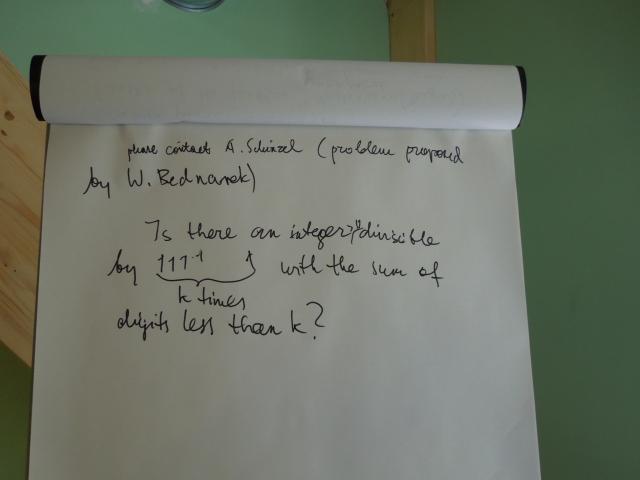 please contact A. Schinzel (problem proposed
by W. Bednarek)
Is there an integer divisible
by 111...1 with the sum of
k times
digits less than k?